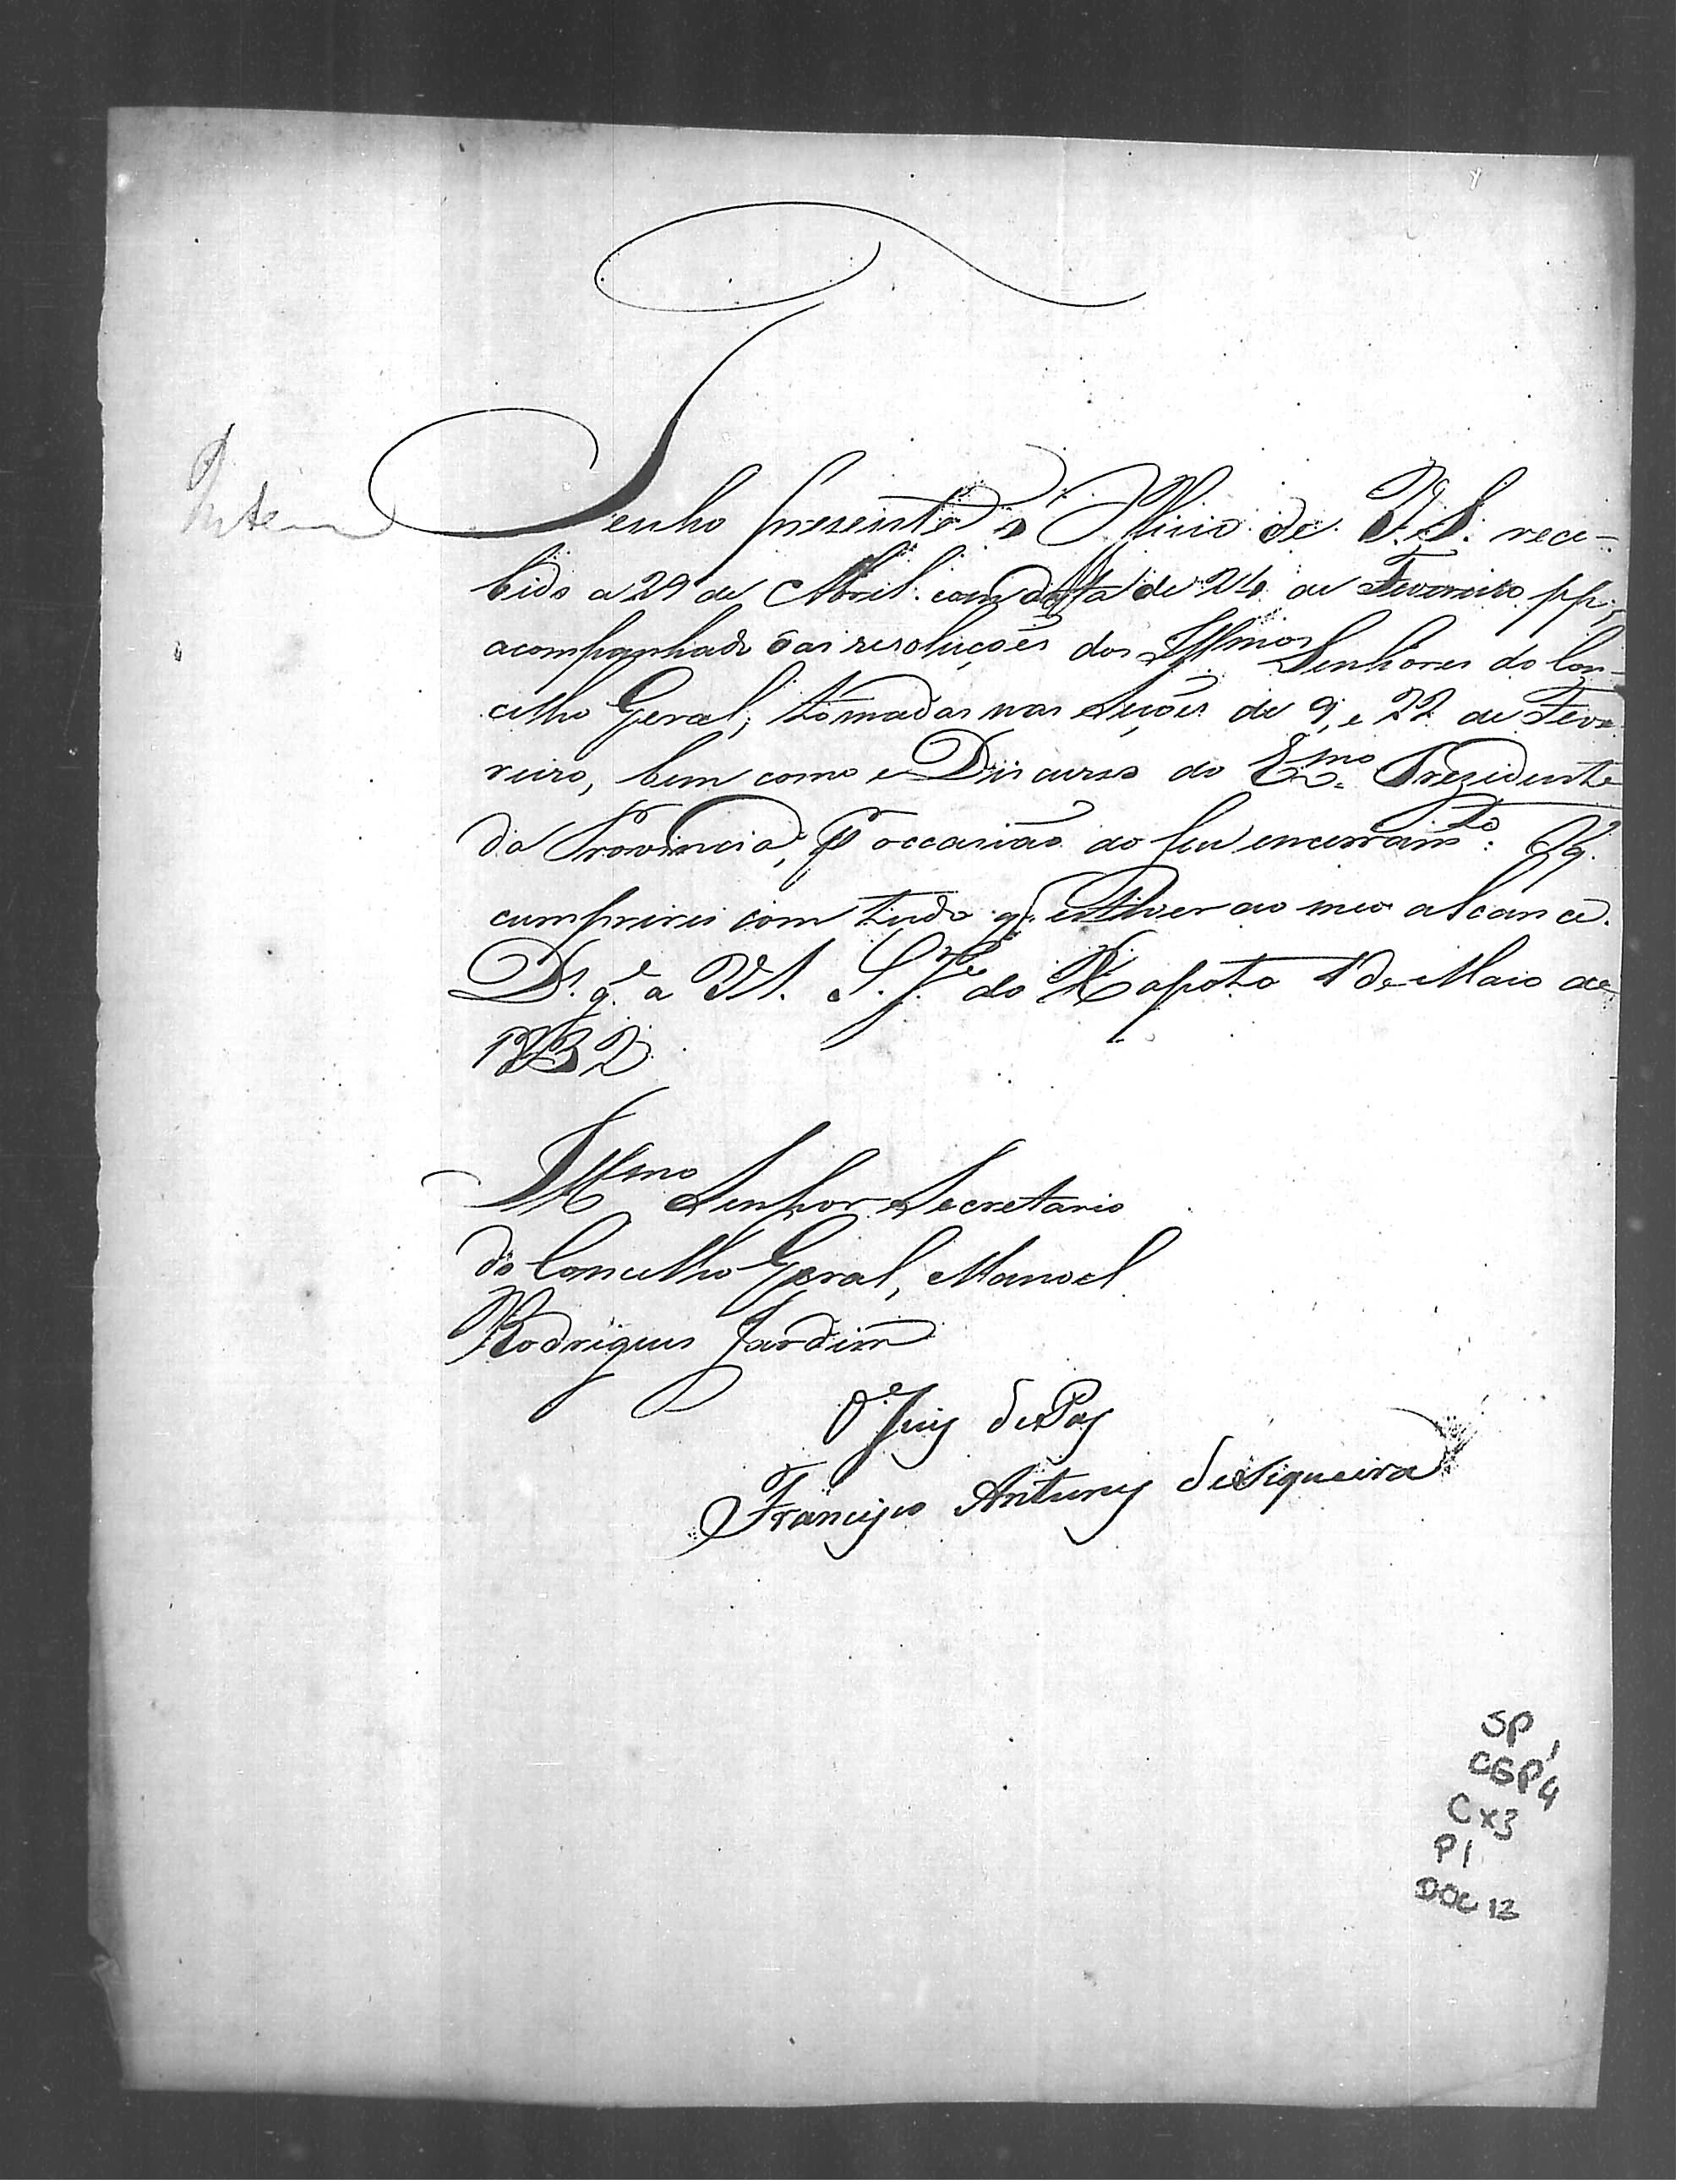 Tenho prezente o Officio de V. S. rece-
bido a 29 de Abril com data de 24 de Fevereiro pp.,
acompanhado das resoluções dos Illmos Senhores do Con-
celho Geral, tomadas nas Seções de 9, e 22 de Feve
reiro, bem como o Discurso do Exmo. Prezidente
da Provincia, pr occazião do seu encerramto. Fq.
cumprirei com tudo q. estiver ao meo alcance.
Ds. ge. a V. S. S. Je do Kapoto 1 de Maio de
1832
Illmo Senhor Secretario
do Concelho Geral, Manoel
Rodrigues Jardim
O Juiz de Paz
Francisco Antunes de Siqueira
SP 1
CGP4
Cx3
P1
DOC 12